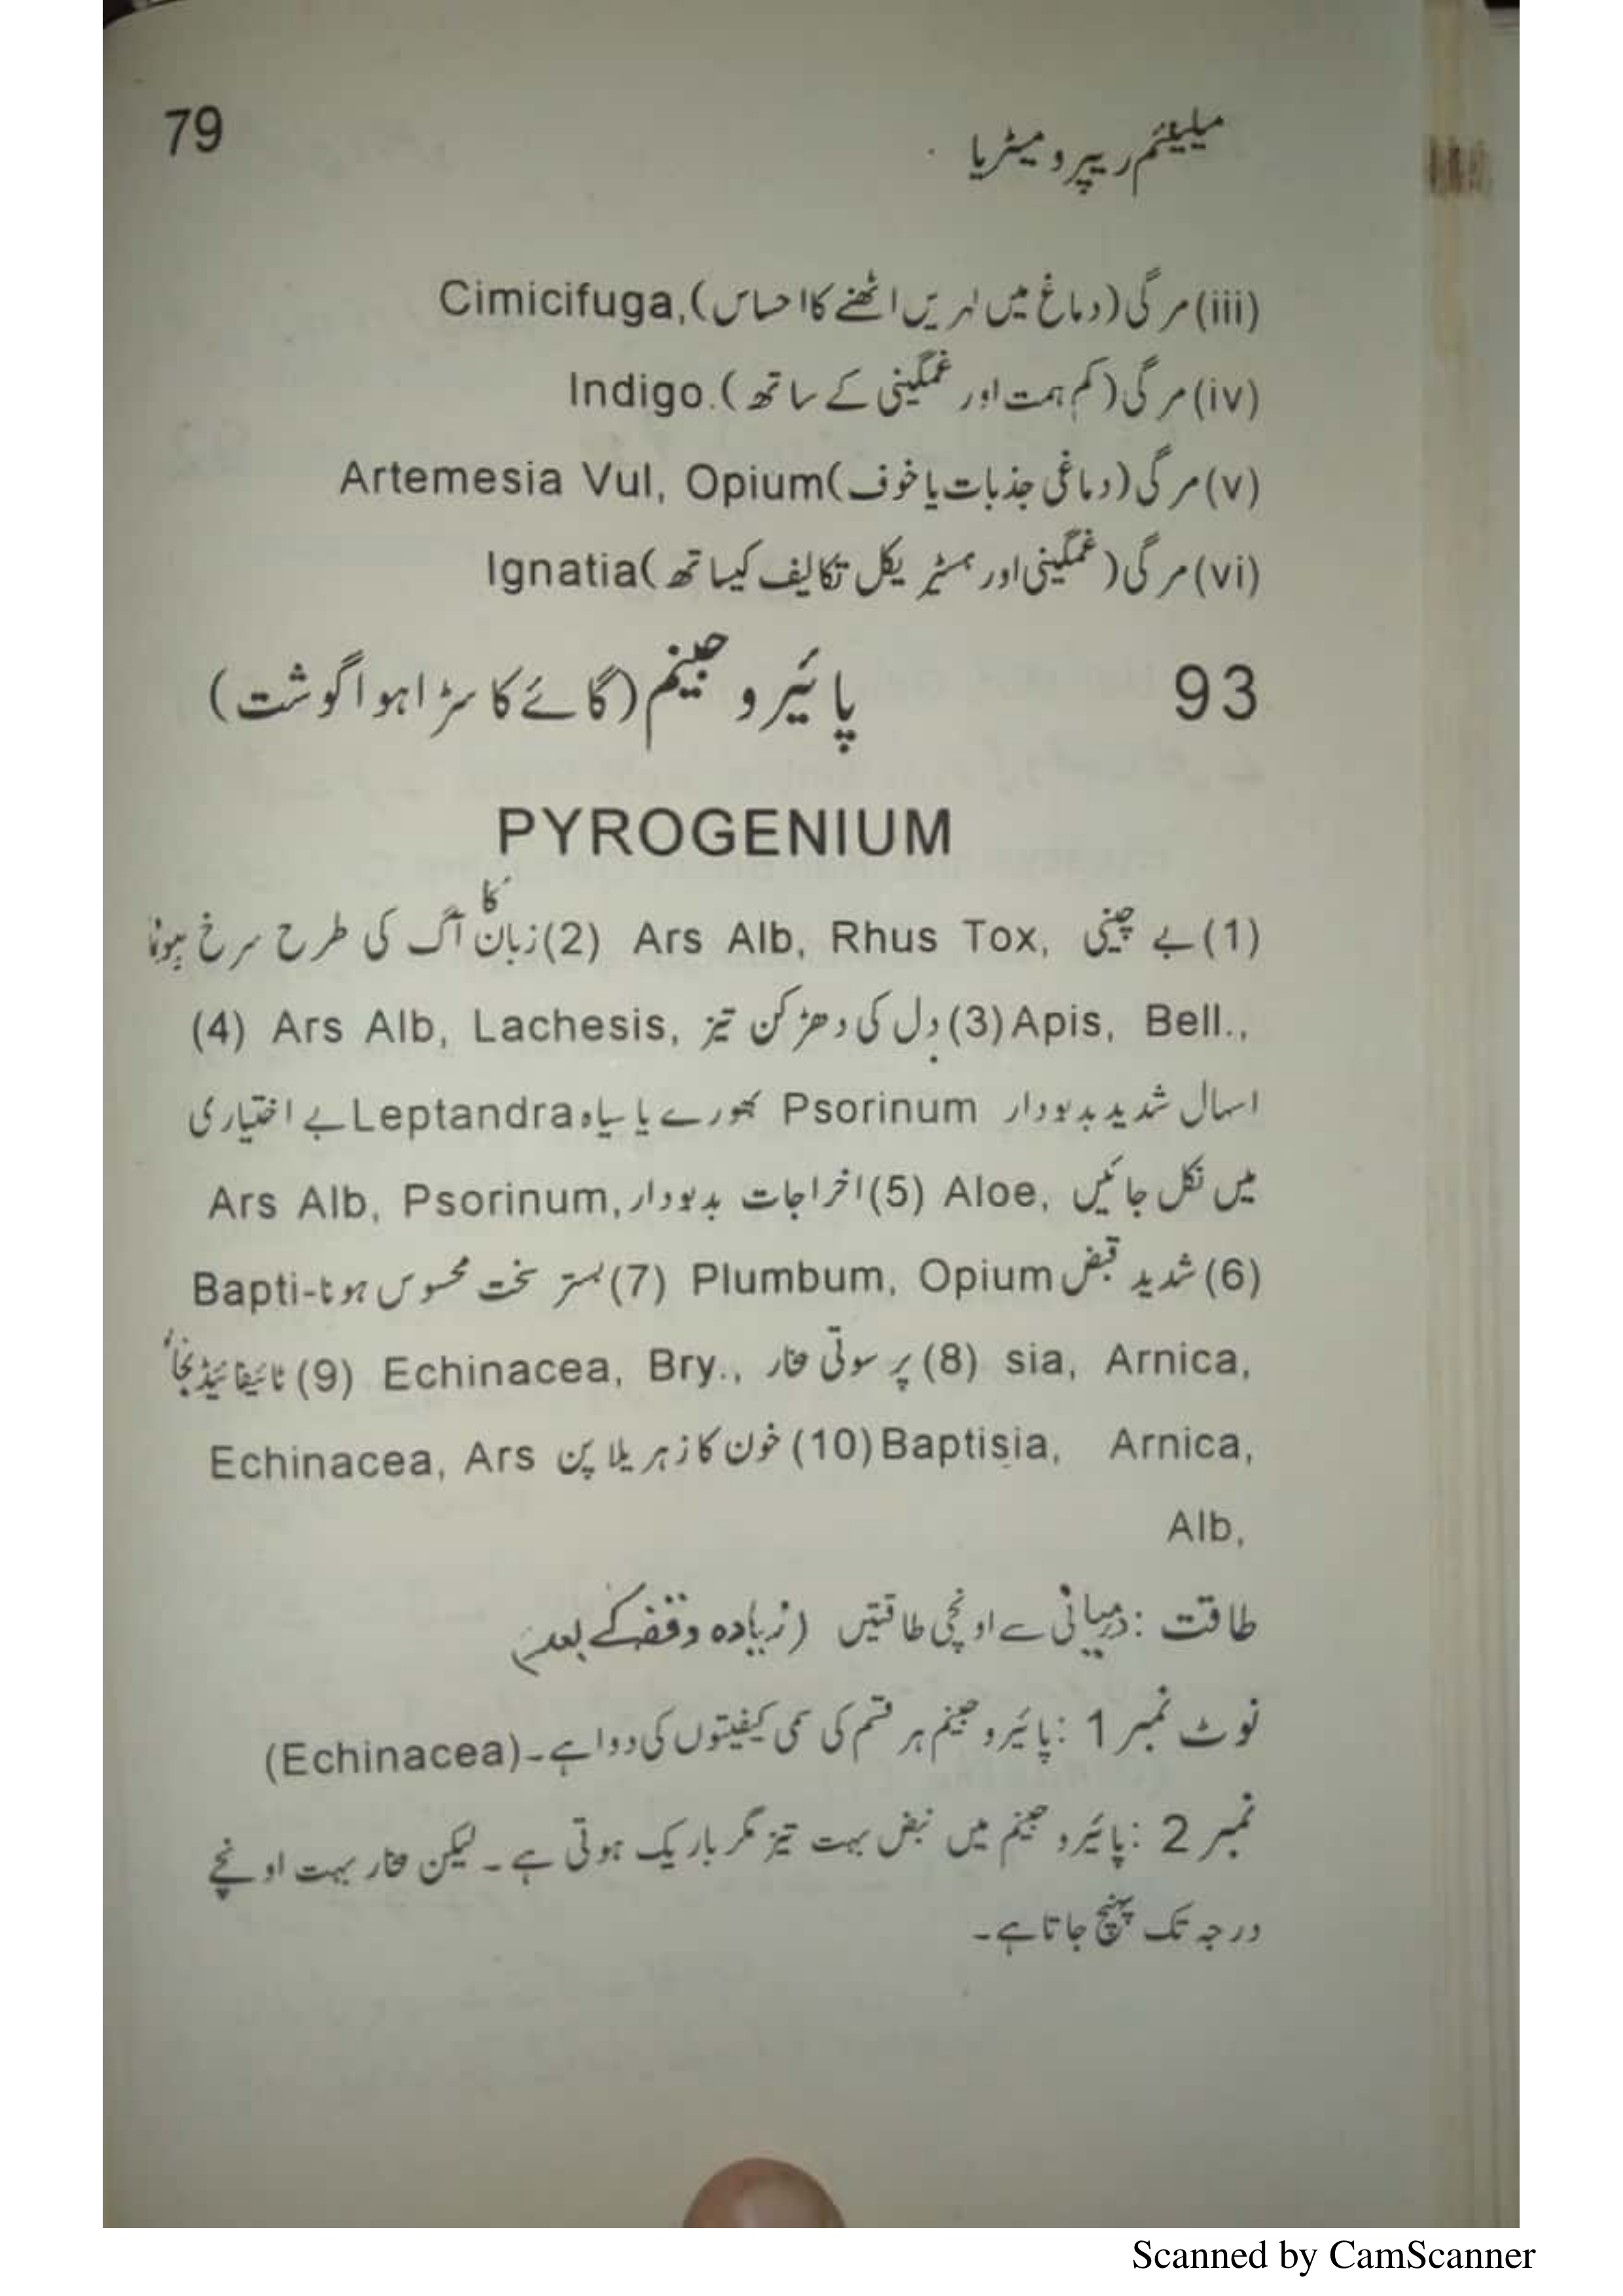 79
میلینئم ریپرومیٹریا
(iii) مرگی (دماغ میں لہریں اٹھنے کا احساس) Cimicifuga,
(iv) مرگی (کم ہمت اور غمگینی کے ساتھ) Indigo.
(v) مرگی (دماغی جذبات یا خوف) Artemesia Vul, Opium
(vi) مرگی (غمگینی اور ہسٹریکل تکالیف کیساتھ) Ignatia
93 پائیروجینم (گائے کا سڑا ہوا گوشت)
PYROGENIUM
(1) بے چینی Ars Alb, Rhus Tox, (2) زبان کا آگ کی طرح سرخ ہونا
Apis, Bell., (3) دل کی دھڑکن تیز Ars Alb, Lachesis, (4)
اسہال شدید بدبودار Psorinum بھورے یا سیاہ Leptandra بے اختیاری
میں نکل جائیں Aloe, (5) اخراجات بدبودار Ars Alb, Psorinum,
(6) شدید قبض Plumbum, Opium (7) بستر سخت محسوس ہوتا Bapti-
sia, Arnica, (8) پرسوتی بخار Echinacea, Bry., (9) ٹائیفائیڈ بخار
Baptisia, Arnica, (10) خون کا زہریلا پن Echinacea, Ars
Alb,
طاقت : درمیانی سے اونچی طاقتیں (زیادہ وقفہ کے بعد)
نوٹ نمبر 1 : پائیروجینم ہر قسم کی سمی کیفیتوں کی دوا ہے۔ (Echinacea)
نمبر 2 : پائیروجینم میں نبض بہت تیز مگر باریک ہوتی ہے۔ لیکن بخار بہت اونچے
درجہ تک پہنچ جاتا ہے۔
Scanned by CamScanner